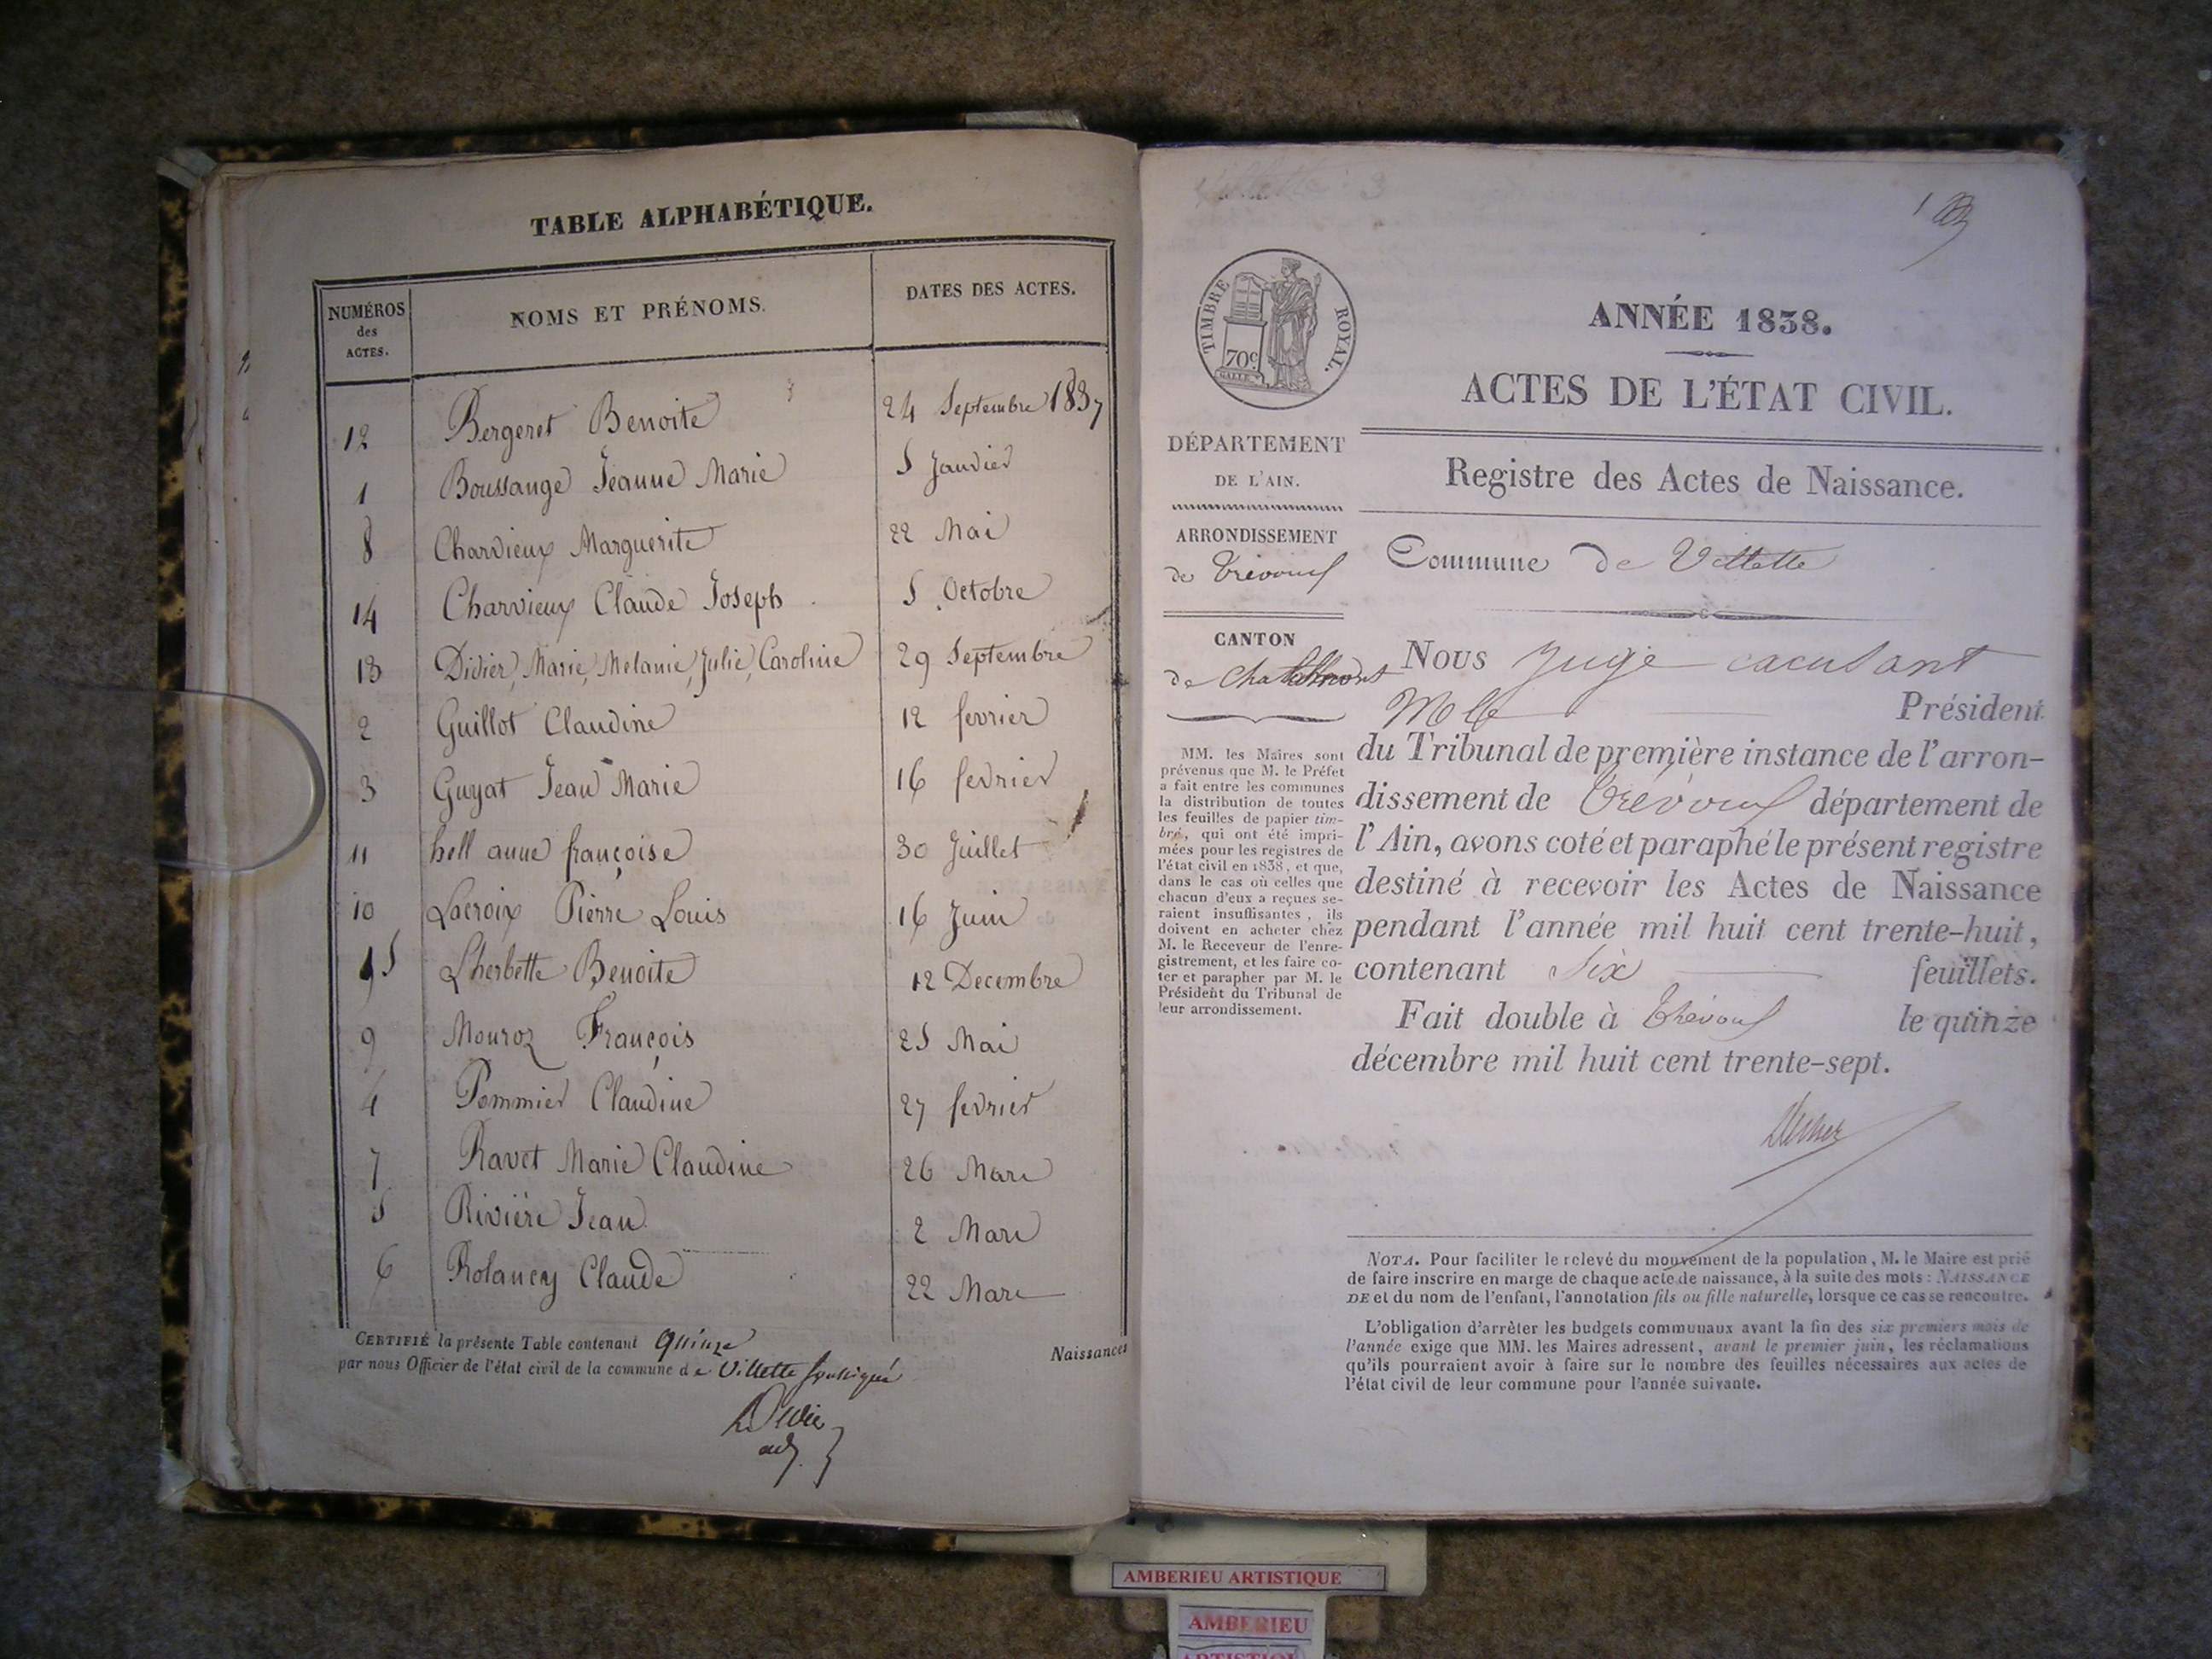 TABLE ALPHABÉTIQUE.
NUMÉROS des ACTES.
NOMS ET PRÉNOMS.
DATES DES ACTES.
12 Bergeret Benoite 24 Septembre 1837
1 Boussange Jeanne Marie 5 Janvier
8 Charvieux Marguerite 22 Mai
14 Charvieux Claude Joseph 5 Octobre
13 Didier, Marie, Melanie, Julie, Caroline 29 Septembre
2 Guillot Claudine 12 fevrier
3 Guyat Jean Marie 16 fevrier
11 hell anne françoise 30 Juillet
10 Lacroix Pierre Louis 16 Juin
15 Lherbette Benoite 12 Decembre
9 Mouroz François 25 Mai
4 Pommier Claudine 27 fevrier
7 Ravet Marie Claudine 26 Mars
5 Rivière Jean 2 Mars
6 Rolancy Claude 22 Mars
CERTIFIÉ la présente Table contenant quinze Naissances
par nous Officier de l'état civil de la commune de Villette soussigné
TIMBRE ROYAL.
70c
ANNÉE 1838.
ACTES DE L'ÉTAT CIVIL.
Registre des Actes de Naissance.
Commune de Villette
DÉPARTEMENT
DE L'AIN.
ARRONDISSEMENT
de Trévoux
CANTON
de
MM. les Maires sont
prévenus que M. le Préfet
a fait entre les communes
la distribution de toutes
les feuilles de papier tim-
bré, qui ont été impri-
mées pour les registres de
l'état civil en 1838, et que,
dans le cas où celles que
chacun d'eux a reçues se-
raient insuffisantes, ils
doivent en acheter chez
M. le Receveur de l'enre-
gistrement, et les faire co-
ter et parapher par M. le
Président du Tribunal de
leur arrondissement.
Nous Juge
Président
du Tribunal de première instance de l'arron-
dissement de Trévoux département de
l'Ain, avons coté et paraphé le présent registre
destiné à recevoir les Actes de Naissance
pendant l'année mil huit cent trente-huit,
contenant Six feuillets.
Fait double à Trévoux le quinze
décembre mil huit cent trente-sept.
NOTA. Pour faciliter le relevé du mouvement de la population, M. le Maire est prié
de faire inscrire en marge de chaque acte de naissance, à la suite des mots: NAISSANCE
DE et du nom de l'enfant, l'annotation fils ou fille naturelle, lorsque ce cas se rencontre.
L'obligation d'arrêter les budgets communaux avant la fin des six premiers mois de
l'année exige que MM. les Maires adressent, avant le premier juin, les réclamations
qu'ils pourraient avoir à faire sur le nombre des feuilles nécessaires aux actes de
l'état civil de leur commune pour l'année suivante.
AMBERIEU ARTISTIQUE
AMBERIEU
ARTISTIQUE